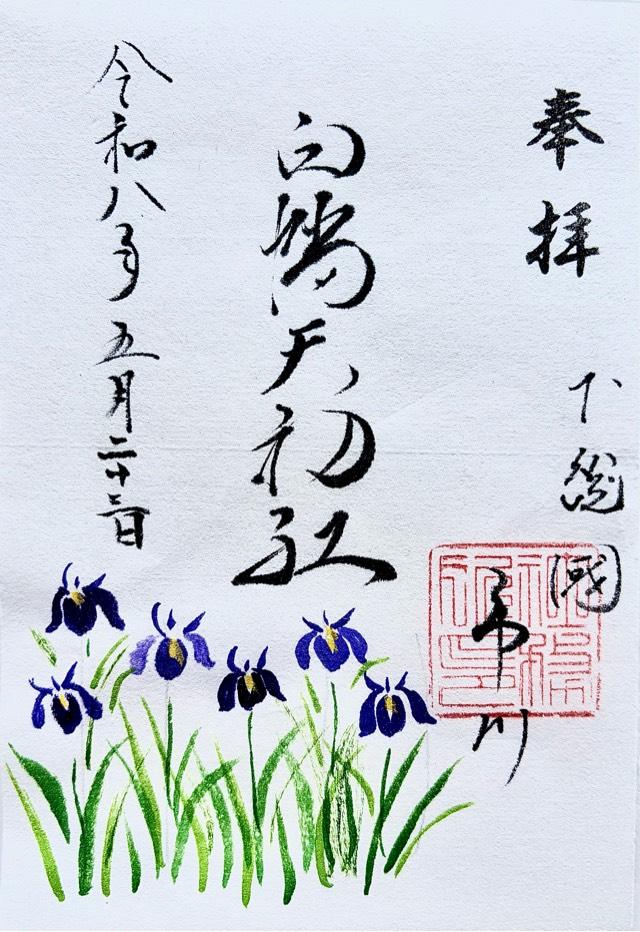 奉拝
下総國
市川
白幡天神社
令和八年五月二十三日